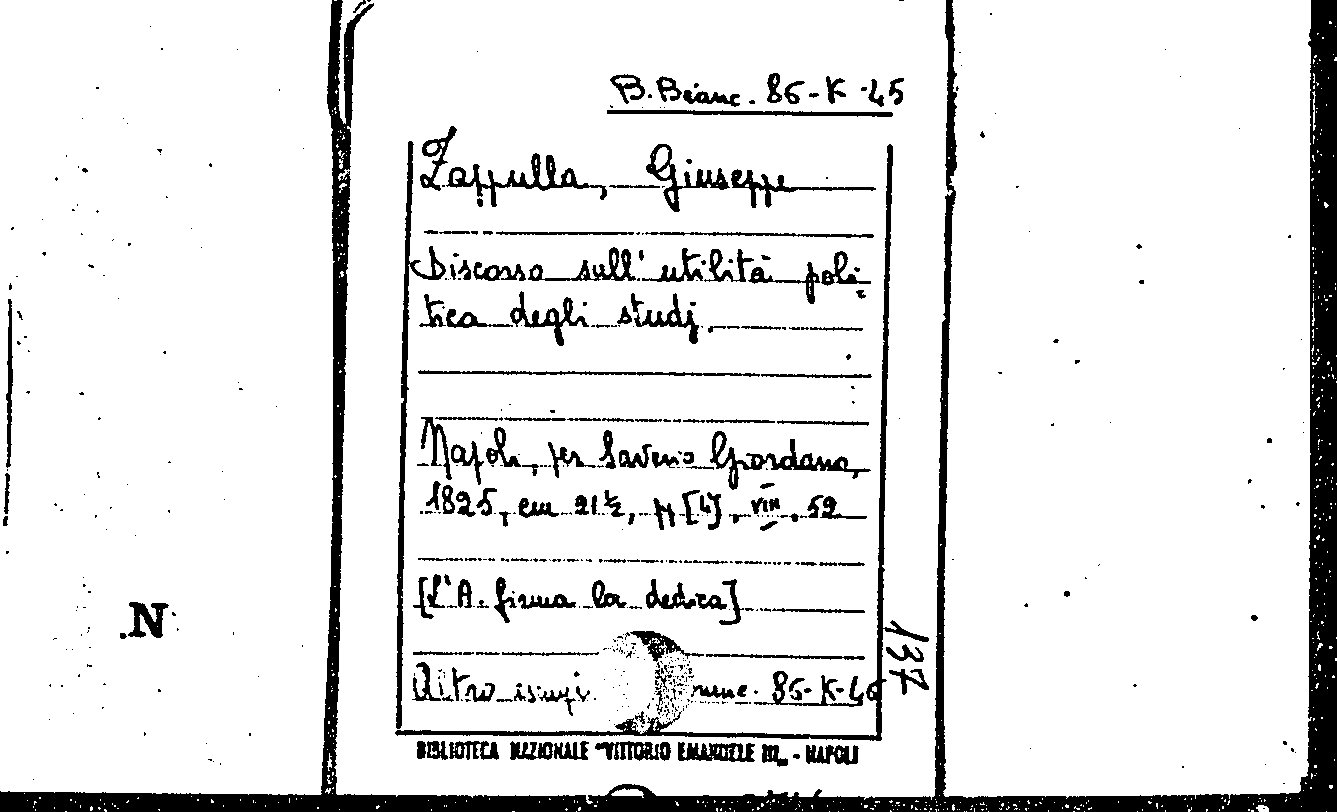 B. Branc. 86-K-45
Zappulla, Giuseppe
Discorso sull'utilità poli=
tica degli studj.
Napoli, per Saverio Giordano,
1825, cm 21½, pp [4], VIII, 52
[L'A. firma la dedica]
Altro
86-K-46
137
N
BIBLIOTECA NAZIONALE "VITTORIO EMANUELE III" - NAPOLI